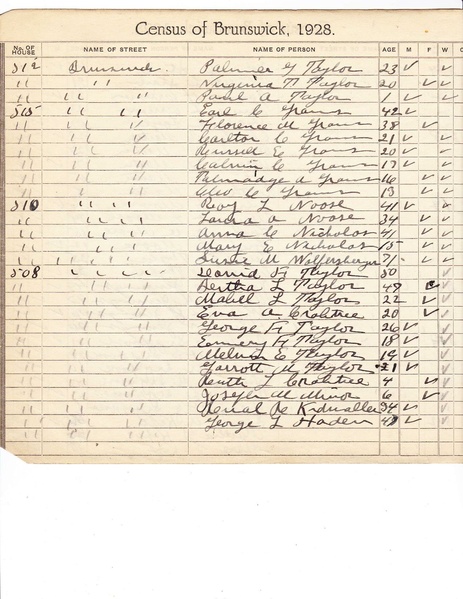 Census of Brunswick, 1928.
No. OF HOUSE NAME OF STREET NAME OF PERSON AGE M F W C
512 Brunswick Palmer G Taylor 23 ✓ ✓
" " Virginia Taylor 20 ✓ ✓
" " " Paul A Taylor 1 ✓ ✓
515 " " Earl C 42 ✓
" " " Florence M 38 ✓
" " " Carlton C 21 ✓ ✓
" " " Russell E 20 ✓ ✓
" " " Calvin C 17 ✓ ✓
" " " Talmadge A 16 ✓ ✓
" " " Cleo C 13 ✓ ✓
510 " " Roy L Noose 41 ✓ ✓
" " " Laura A Noose 34 ✓ ✓
" " " Anna C Nicholas 41 ✓ ✓
" " " Mary E Nicholas 15 ✓ ✓
" " " Susie M 71 ✓ ✓
508 " " " " David H Taylor 50 ✓
" " " Bertha L Taylor 49 ✓
" " " Mabel L Taylor 22 ✓ ✓
" " " Eva A Crabtree 20 ✓ ✓
" " " George H Taylor 26 ✓ ✓
" " " Emery H Taylor 18 ✓ ✓
" " " Melvin E Taylor 19 ✓ ✓
" " " Garrott M Taylor 21 ✓ ✓
" " " Ruth L Crabtree 4 ✓ ✓
" " " Joseph M Minor 6 ✓ ✓
" " " R 34 ✓ ✓
" " " George L Haden ✓ ✓